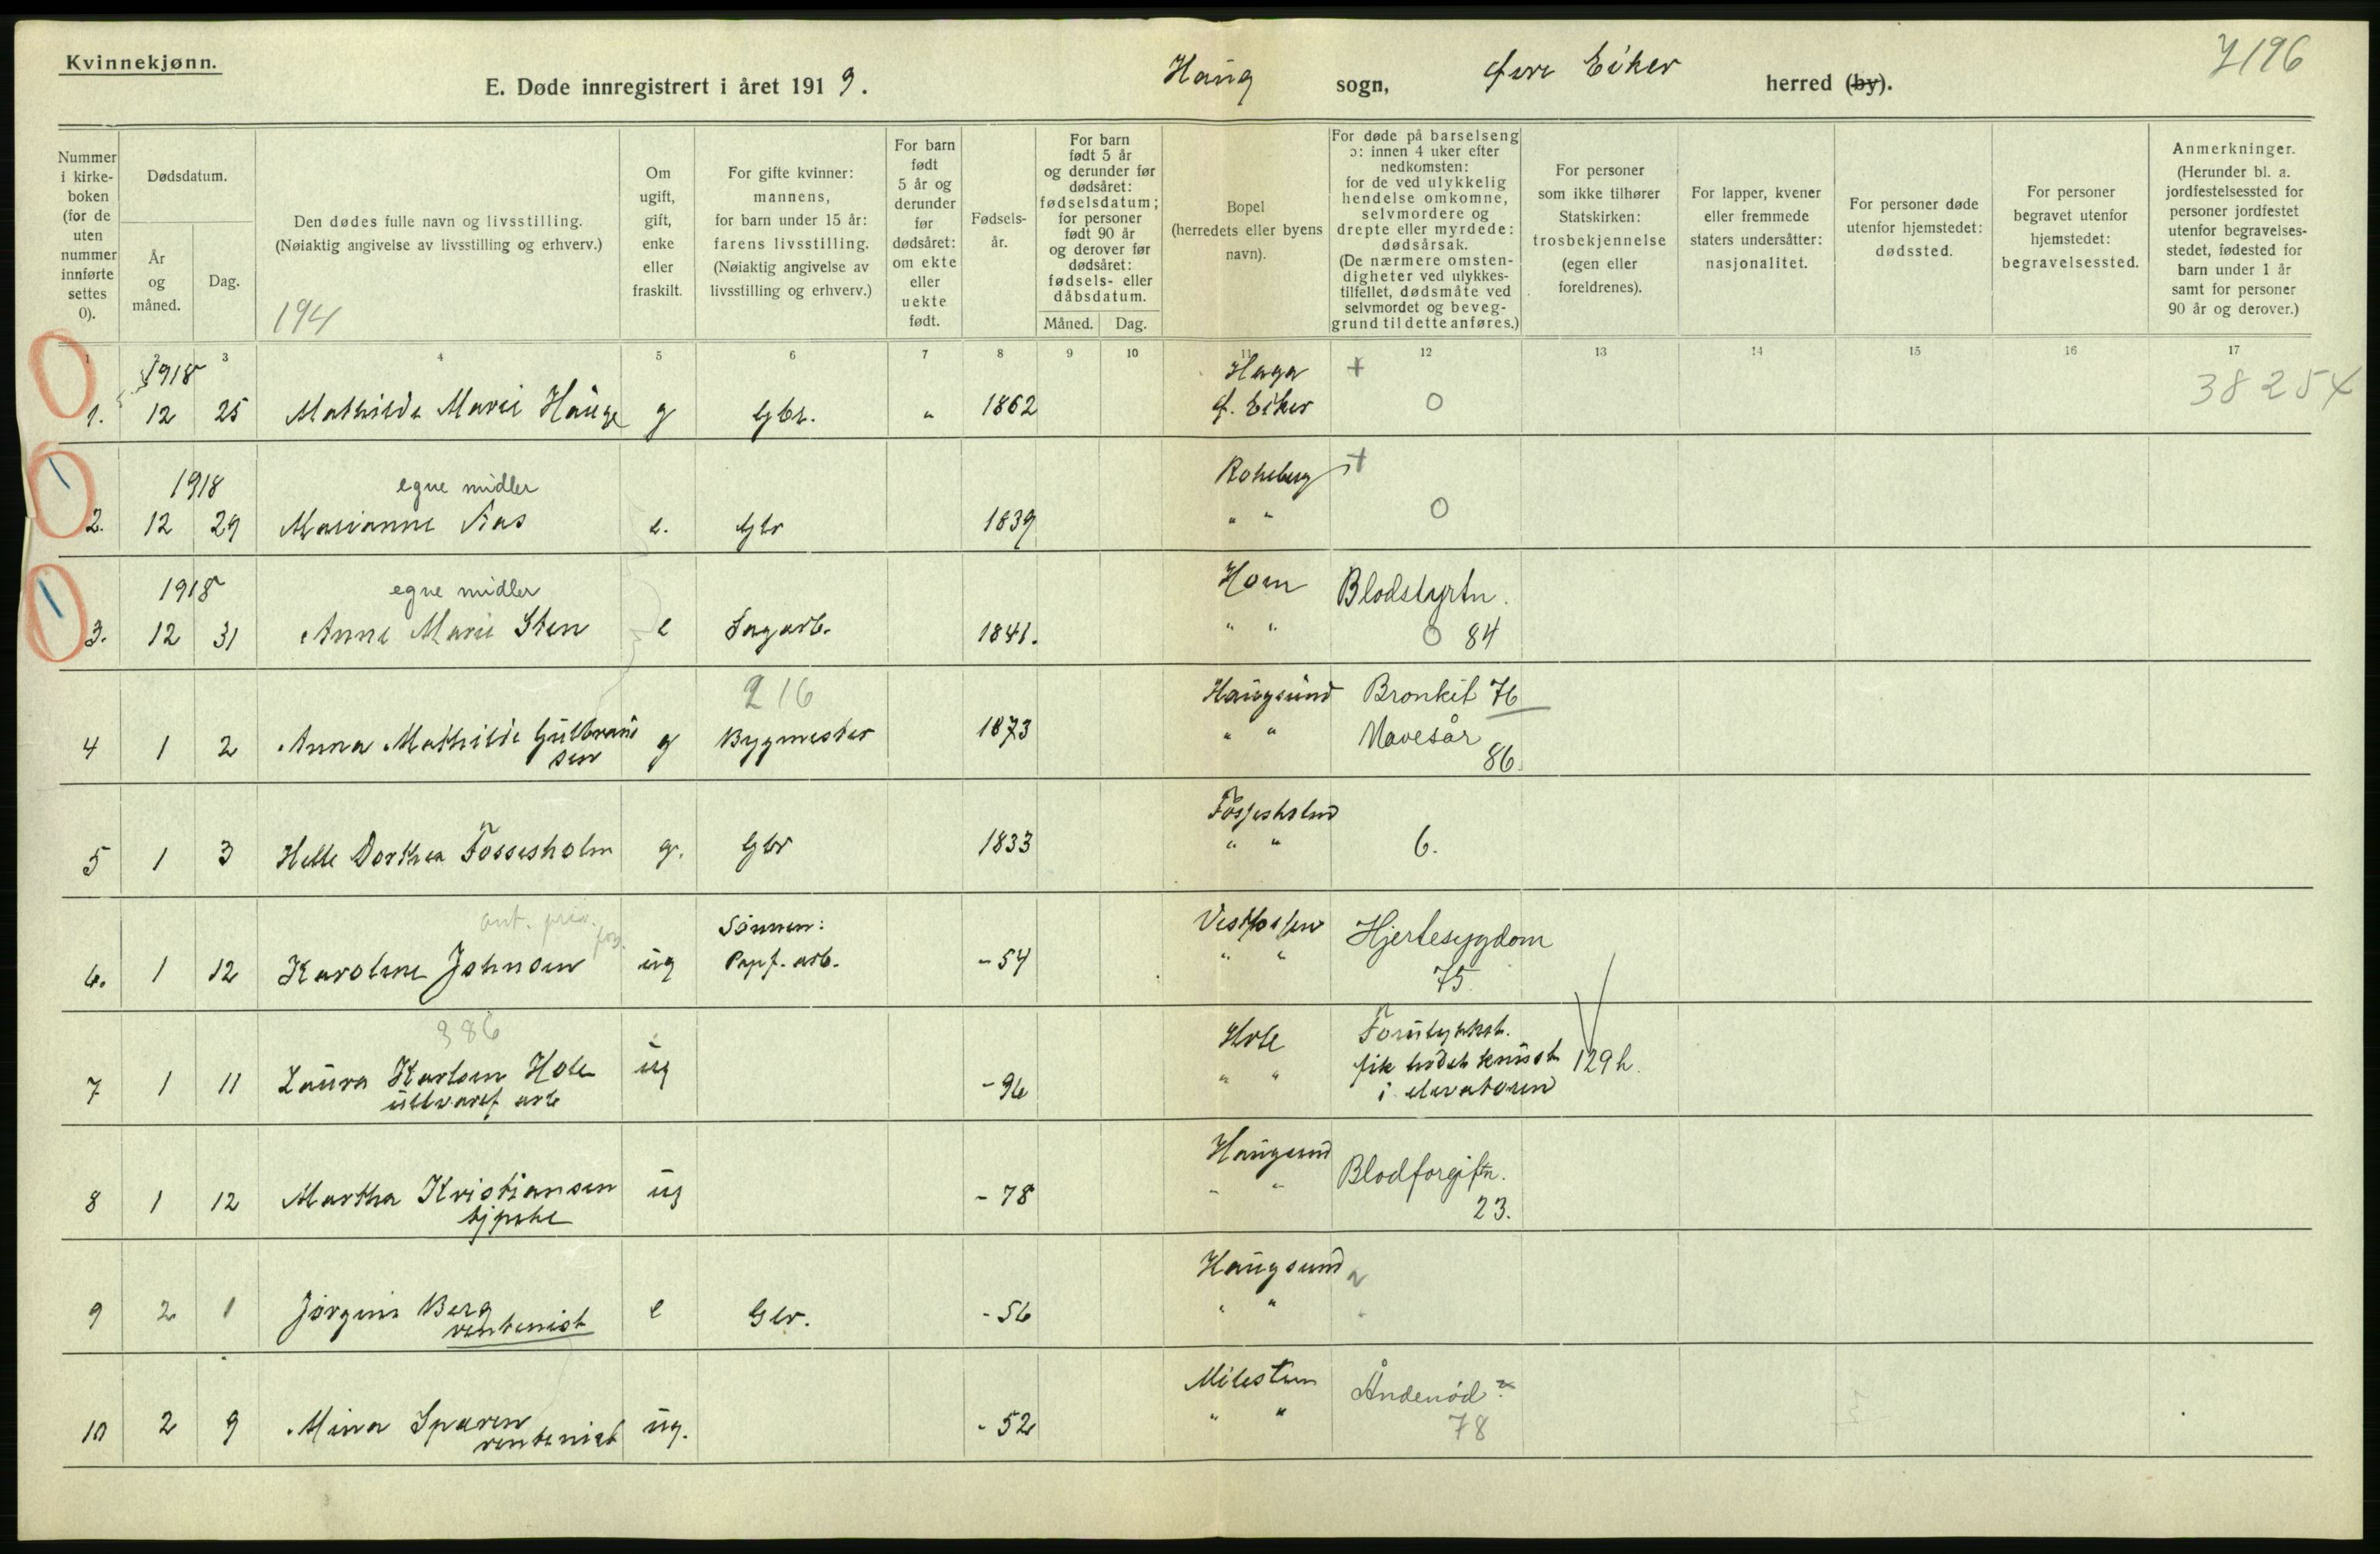 Kvinnekjønn.
E. Døde innregistrert i året 1919. Haug sogn, Eiker herred (by).
7196
Nummer i kirke-boken (for de uten nummer innførte settes 0).
Dødsdatum.
År og måned.
Dag.
Den dødes fulle navn og livsstilling.
(Nøiaktig angivelse av livsstilling og erhverv.)
194
Om ugift, gift, enke eller fraskilt.
For gifte kvinner: mannens, for barn under 15 år: farens livsstilling.
(Nøiaktig angivelse av livsstilling og erhverv.)
For barn født 5 år og derunder før dødsåret: om ekte eller uekte født.
Fødsels-år.
For barn født 5 år og derunder før dødsåret: fødselsdatum; for personer født 90 år og derover før dødsåret: fødsels- eller dåbsdatum.
Måned. Dag.
Bopel (herredets eller byens navn).
For døde på barselseng ɔ: innen 4 uker efter nedkomsten: for de ved ulykkelig hendelse omkomne, selvmordere og drepte eller myrdede: dødsårsak.
(De nærmere omsten-digheter ved ulykkes-tilfellet, dødsmåte ved selvmordet og beveg-grund til dette anføres.)
For personer som ikke tilhører Statskirken: trosbekjennelse (egen eller foreldrenes).
For lapper, kvener eller fremmede staters undersåtter: nasjonalitet.
For personer døde utenfor hjemstedet: dødssted.
For personer begravet utenfor hjemstedet: begravelsessted.
Anmerkninger.
(Herunder bl. a. jordfestelsessted for personer jordfestet utenfor begravelses-stedet, fødested for barn under 1 år samt for personer 90 år og derover.)
1 2 3 4 5 6 7 8 9 10 11 12 13 14 15 16 17
1918 Haga +
1. 12 25 Mathilde Marie Hauge g Gbr. " 1862 Ø. Eiker 0 38254
1918 egne midler +
2. 12 29 Marianne Aas e. Gbr 1839 " " 0
1918 egne midler Horn Blodstyrtn.
3. 12 31 Anne Marie Sten e Sagarb. 1841. " " 0 84
216 Haugsund Bronkit 76
4 1 2 Anna Mathilde Gulbrand g Bygmester 1873 " " Mavesår
sen 86.
Fossesholm
5 1 3 Helle Dorthea Fossesholm g. Gbr 1833 " " 6.
Sønnen: Vestfossen Hjertesygdom
6. 1 12 Karoline Johnsen ug Papf. arb. -54 " " 75
386 Hole Forulykket.
7 1 11 Laura Karlsen Hole ug -96 " " fik hodet knust 129 h.
uldvaref arb i elevatoren
Haugsund Blodforgiftn.
8 1 12 Martha Kristiansen ug -78 " " 23.
tjeneste
Haugsund
9 2 1 Jørgine Berg e Gbr. -56 " "
rentenist
Milesten Åndenød?
10 2 9 Mina Sparen ug. -52 " " 78
rentenist